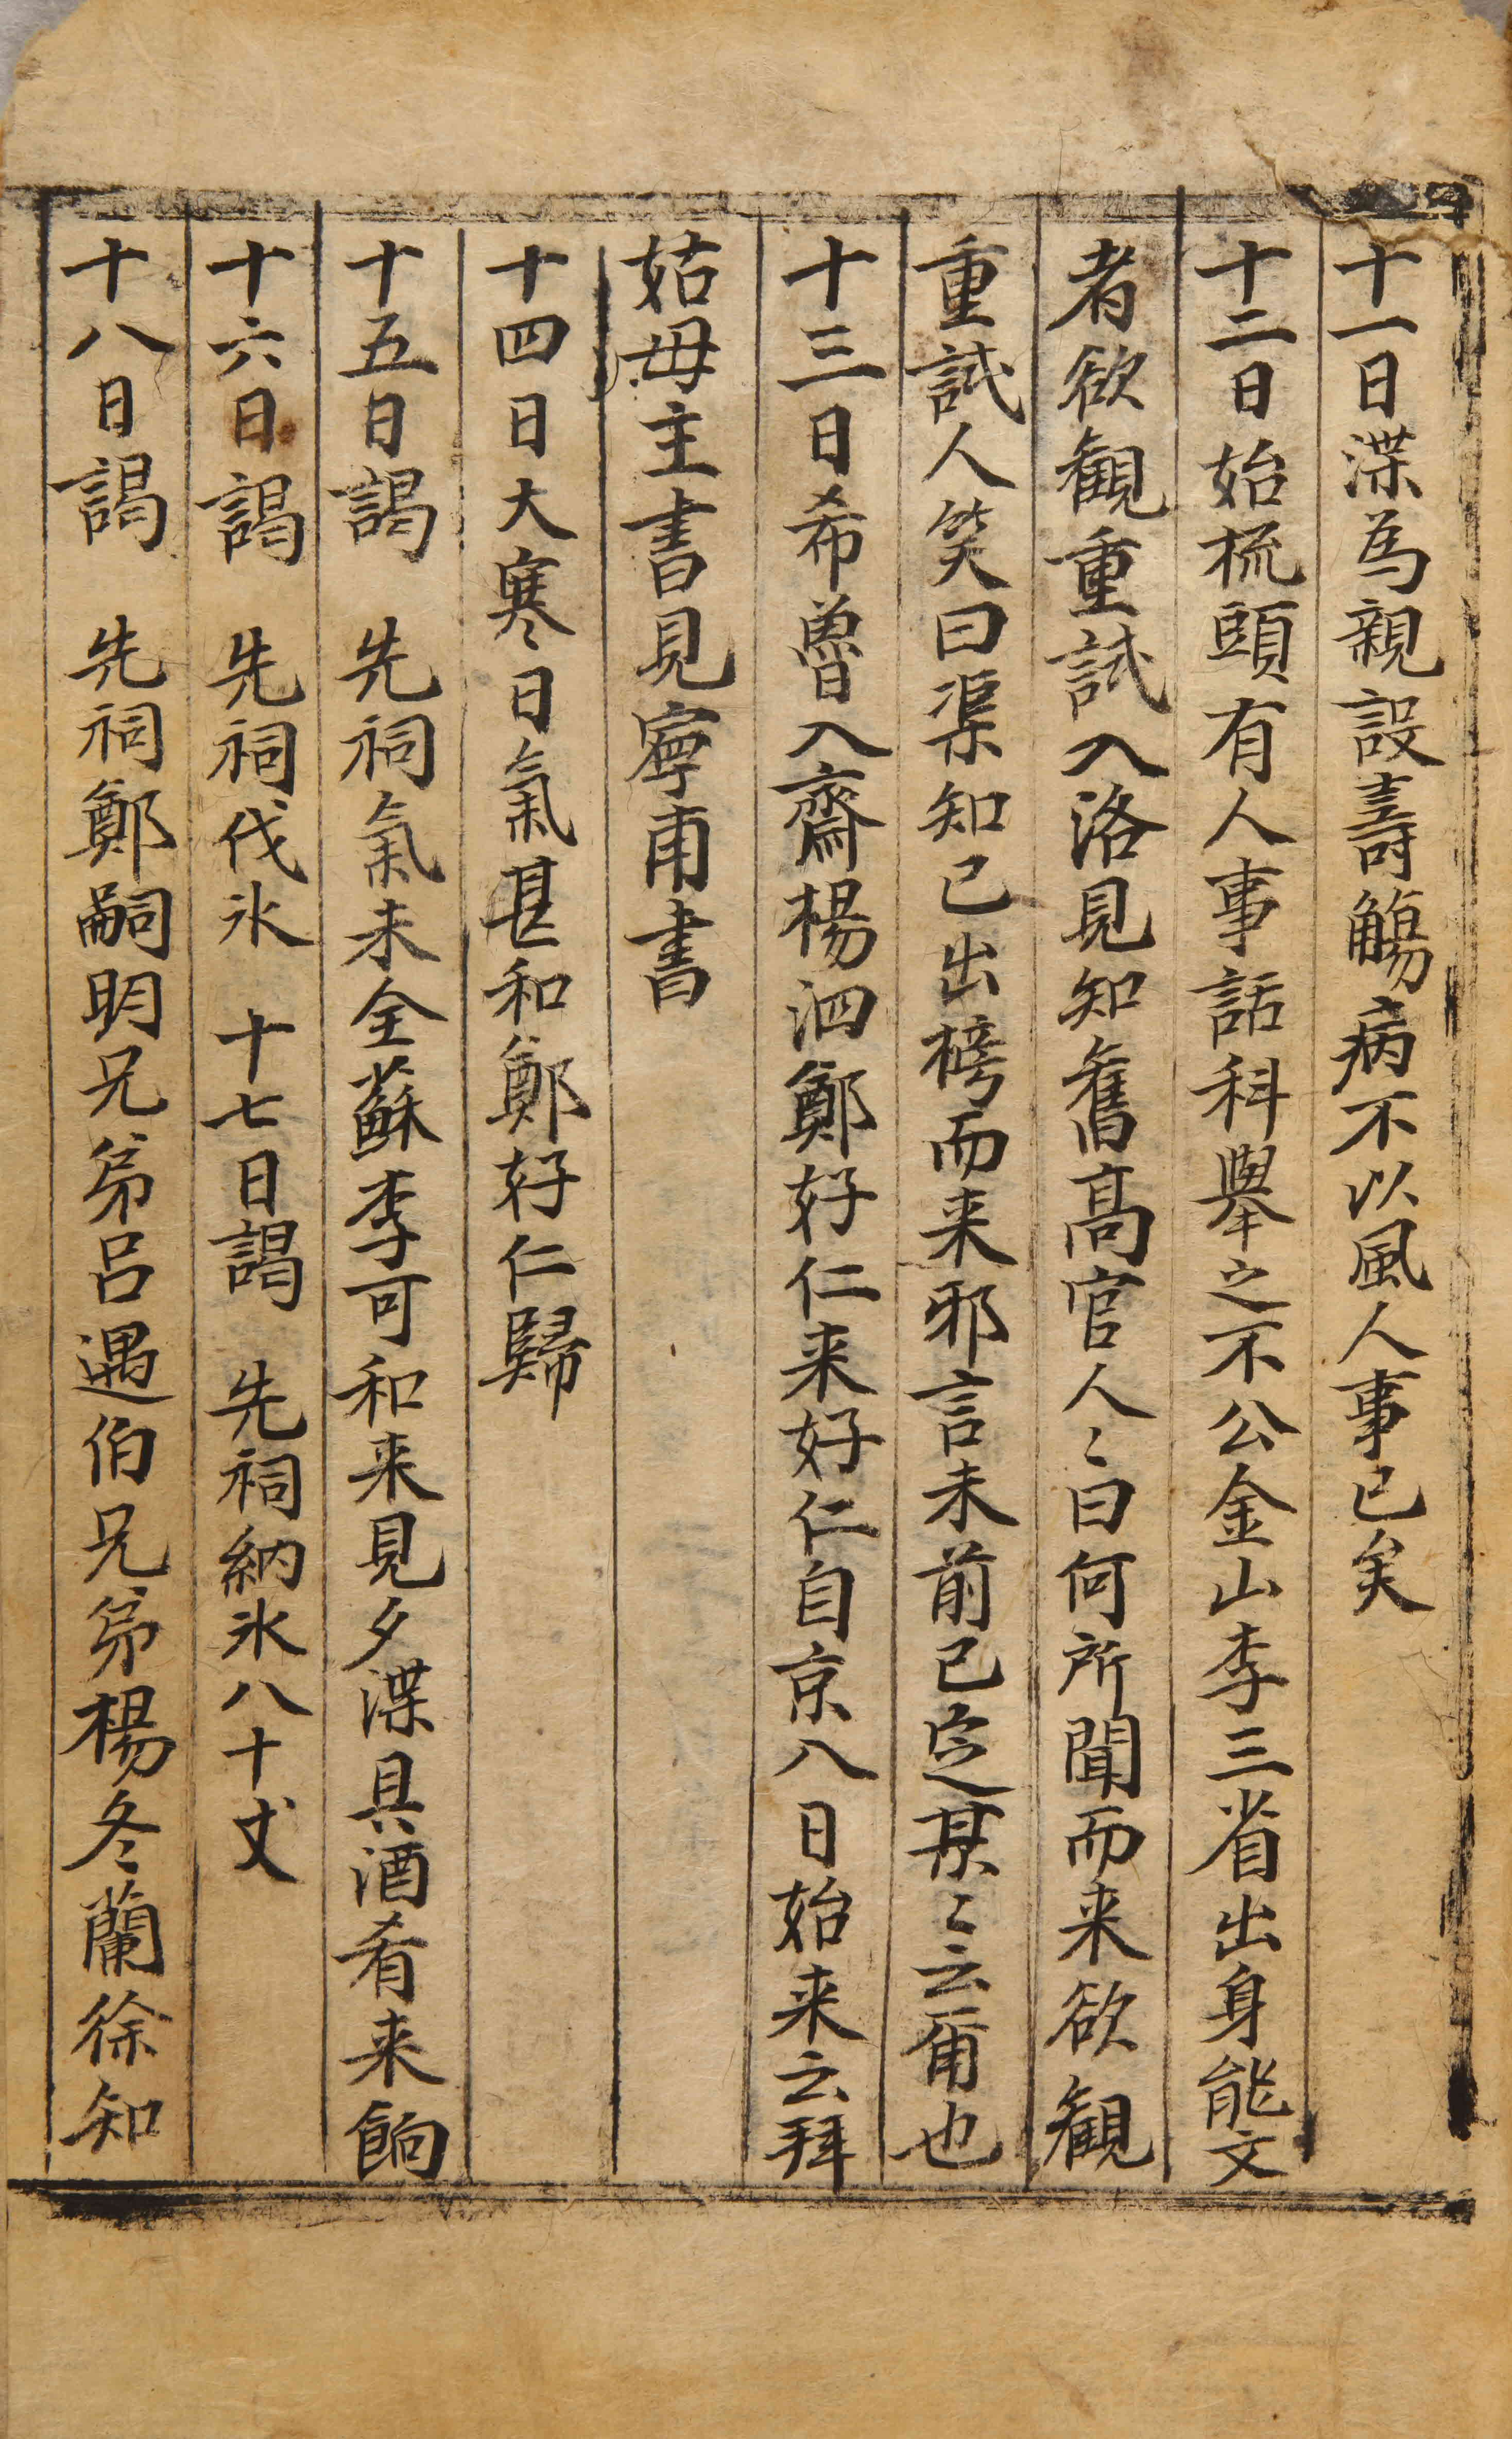 十一日渫為親設壽觴病不以風人事已矣
十二日始梳頭有人事話科擧之不公金山李三省出身能文
者欲観重試入洛見知舊高官人〻曰何所聞而来欲観
重試人笑曰渠知已出榜而来邪言未前已㝎某〻云甭也
十三日希魯入齋楊泗鄭好仁来好仁自京八日始来云拜
姑母主書見寧甫書
十四日大寒日氣甚和鄭好仁歸
十五日謁　先祠氣未全蘇李可和来見夕渫具酒肴来餉
十六日謁　先祠伐氷　十七日謁　先祠納氷八十丈
十八日謁　先祠鄭嗣明兄弟呂遇伯兄弟楊冬蘭徐知